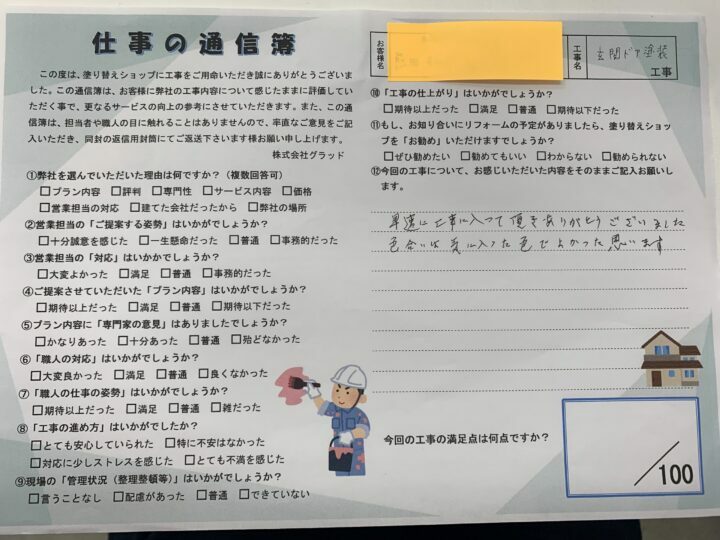 仕事の通信簿
この度は、塗り替えショップに工事をご用命いただき誠にありがとうございま
した。この通信簿は、お客様に弊社の工事内容について感じたままに評価してい
ただく事で、更なるサービスの向上の参考にさせていただきます。また、この通
信簿は、担当者や職人の目に触れることはありませんので、率直なご意見をご記
入いただき、同封の返信用封筒にてご返送下さいます様お願い申し上げます。
株式会社グラッド
①弊社を選んでいただいた理由は何ですか?(複数回答可)
□プラン内容 □評判 □専門性 □サービス内容 □価格
□営業担当の対応 □建てた会社だったから □弊社の場所
②営業担当の「ご提案する姿勢」はいかがでしょうか?
□十分誠意を感じた □一生懸命だった □普通 □事務的だった
③営業担当の「対応」はいかかでしょうか?
□大変よかった □満足 □普通 □事務的だった
④ご提案させていただいた「プラン内容」はいかがでしょうか?
□期待以上だった □満足 □普通 □期待以下だった
⑤プラン内容に「専門家の意見」はありましたでしょうか?
□かなりあった □十分あった □普通 □殆どなかった
⑥「職人の対応」はいかがでしょうか?
□大変良かった □満足 □普通 □良くなかった
⑦「職人の仕事の姿勢」はいかがでしょうか?
□期待以上だった □満足 □普通 □雑だった
⑧「工事の進め方」はいかがでしたか?
□とても安心していられた □特に不安はなかった
□対応に少しストレスを感じた □とても不満を感じた
⑨現場の「管理状況(整理整頓等)」はいかがでしょうか?
□言うことなし □配慮があった □普通 □できていない
お客様名
工事名
玄関ドア塗装
工事
⑩「工事の仕上がり」はいかがでしょうか?
□期待以上だった □満足 □普通 □期待以下だった
⑪もし、お知り合いにリフォームの予定がありましたら、塗り替えショッ
プを「お勧め」いただけますでしょうか?
□ぜひ勧めたい □勧めてもいい □わからない □勧められない
⑫今回の工事について、お感じいただいた内容をそのままご記入お願いし
ます。
早速に工事に入って頂きありがとうございました
色合いは気に入った色でよかった思います
今回の工事の満足点は何点ですか?
/100